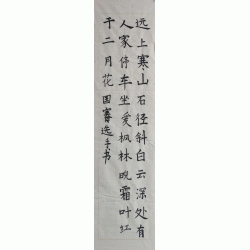 远上寒山石径斜白云深处有
人家停车坐爱枫林晚霜叶红
于二月花 国选手书